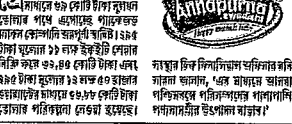 মাধ্যমে ৬৯ কোটি টাকা মূলধন
তোলার পথে এগোচ্ছে প্যাকেজড
স্ন্যাকস কোম্পানি অন্নপূর্ণা স্বাদিষ্ট। ২৯৫
টাকা মূল্যের ১১ লক্ষ ইকুইটি শেয়ার
বিক্রি করে ৩২,৪৫ কোটি টাকা এবং
২৯৫ টাকা মূল্যের ১২ লক্ষ ৫০ হাজার
ওয়ারান্টের মাধ্যমে ৩৬.৮৮ কোটি টাকা
তোলার পরিকল্পনা নেওয়া হয়েছে।
Annapurna
Swadisht
সংস্থার চিফ ফিনান্সিয়াল অফিসার রবি
সারদা জানান, 'এর মাধ্যমে আমরা
পশ্চিমবঙ্গের পরিসাম্পদের পাশাপাশি
পণ্যসামগ্রীর উৎপাদন বাড়াব।'